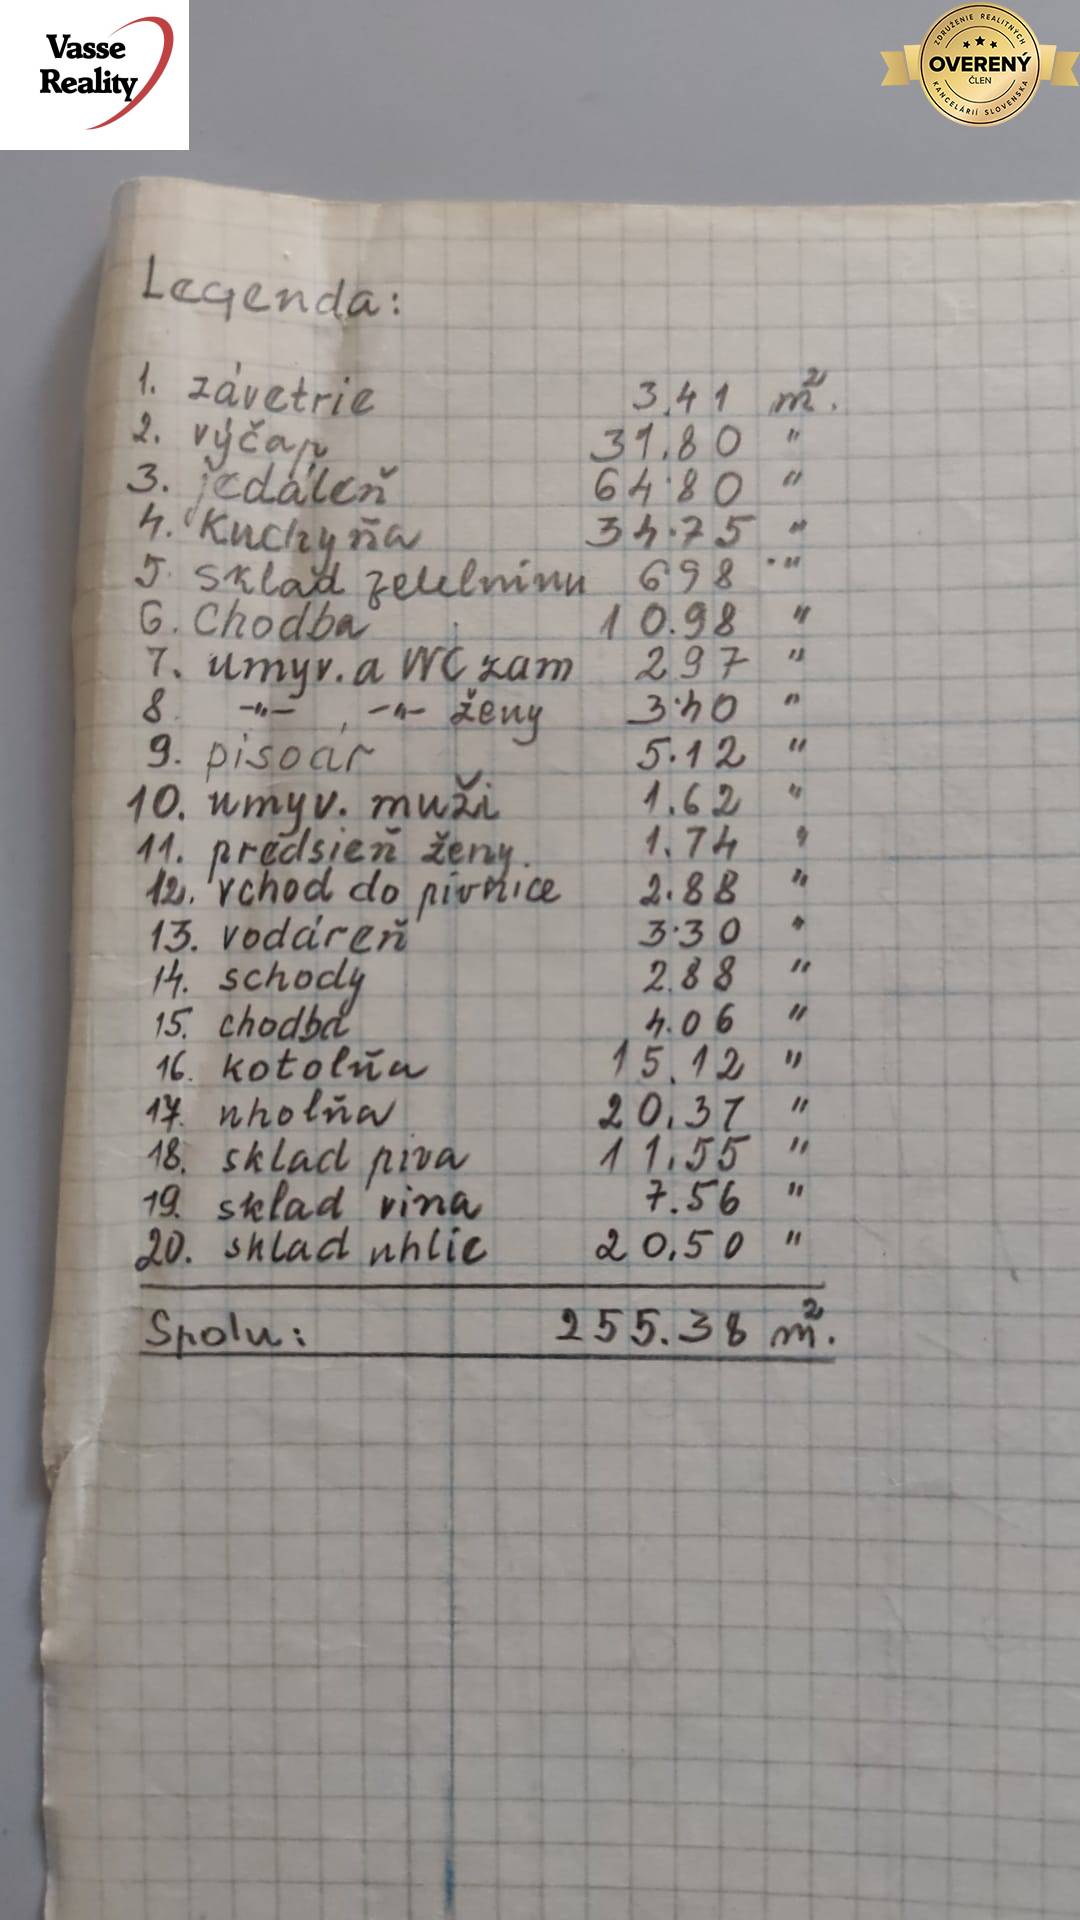 Vasse
Reality
ZDRUŽENIE REALITNÝCH
OVERENÝ
ČLEN
KANCELÁRIÍ SLOVENSKA
Legenda:
1. závetrie 3.41 m².
2. výčap 31.80 "
3. jedáleň 64.80 "
4. Kuchyňa 34.75 "
5. sklad 6 98 "
6. Chodba 10.98 "
7. umyv. a WC zam 2 97 "
8 -"- , -"- ženy 3.40 "
9. pisoár 5.12 "
10. umyv. muži 1.62 "
11. predsieň ženy. 1.74 "
12. vchod do pivnice 2.88 "
13. vodáreň 3.30 "
14. schody 2.88 "
15. chodba 4.06 "
16. kotolňa 15.12 "
17. uholňa 20.37 "
18. sklad piva 11.55 "
19. sklad vina 7.56 "
20. sklad uhlie 20.50 "
Spolu: 255.38 m².